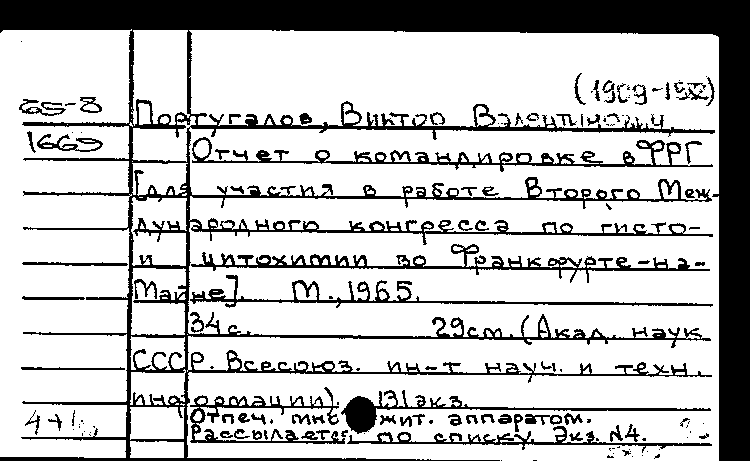 65-8
Португалов, Виктор Валентинович,
1669
Отчет о командировке в ФРГ
[для участия в работе Второго Меж-
дународного конгресса по гисто-
и цитохимии во Франкфурте-на-
Майне]. М., 1965.
34 с. 29 см. (Акад. наук
СССР. Всесоюз. ин-т науч. и техн.
информации). 131 экз.
Отпеч. множит. аппаратом.
Рассылается по списку. Экз. №4.